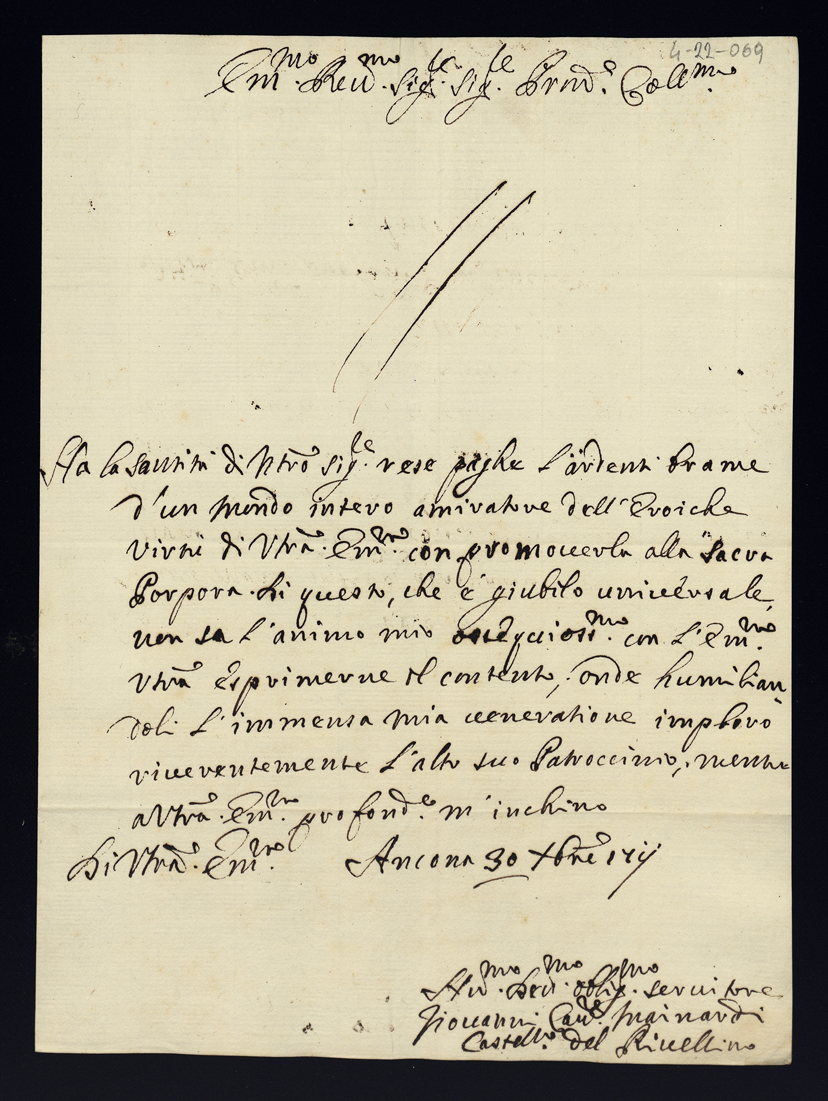 4-22-069
Em.mo Reu.mo Sig.re Sig.re Prnd.e Coll.mo
Ha la Santità di Ntro Sig.re rese paghe l'ardenti brame
d'un Mondo intero amiratore dell'Eroiche
virtù di Vtra Em.za con promouerla alla Sacra
Porpora. Di questo, che è giubilo uniuersale,
non sa l'animo mio ossequioss.mo con l'Em.za
Vtra esprimerne il contento, onde humilian
doli l'immensa mia ueneratione imploro
riuerentemente l'alto suo Patroccinio, mentre
a Vtra Em.za profond.e m'inchino
Di Vtra Em.za Ancona 30 Xbre
Hu.mo Deu.mo oblig.mo seruitore
Giouanni Cau.re Mainardi
Castell.no del Riuellino